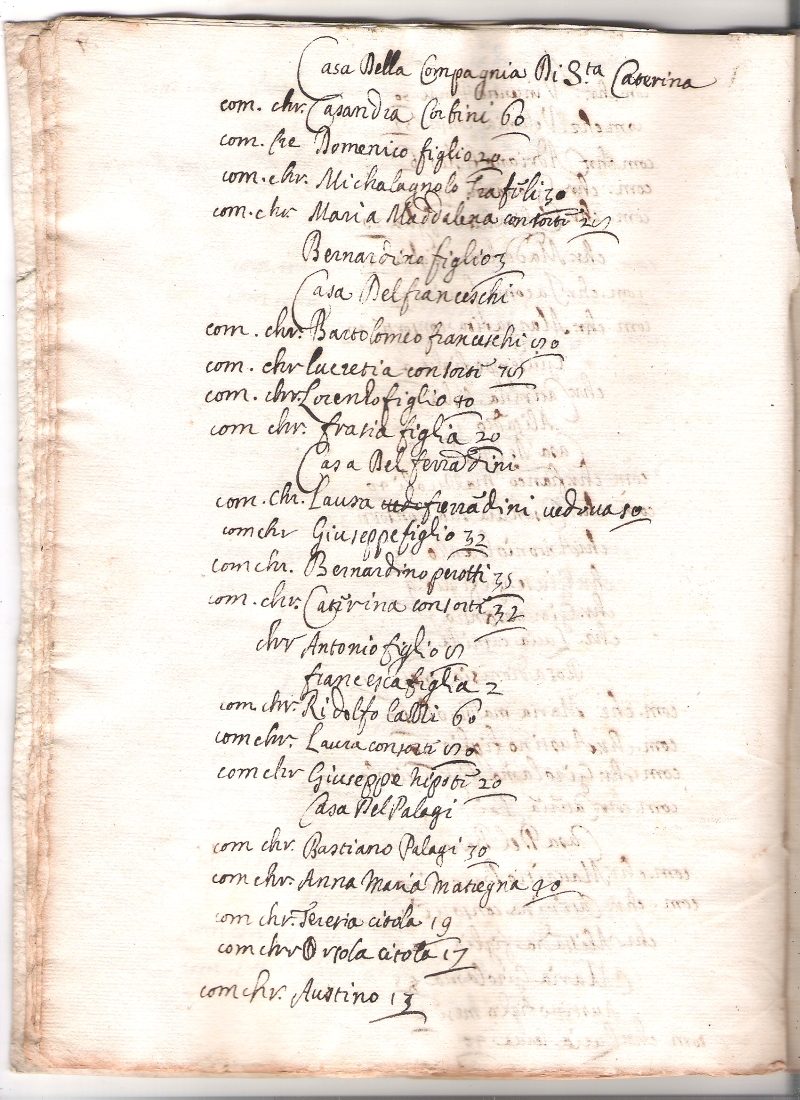 Casa Della Compagnia Di Sta Caterina
com. chr. Casandra Corbini 60
com. cre Domenico figlio 20
com. chr. Michalagnolo 30
com. chr Maria Maddalena consorte 25
Bernardina figlio 3
Casa Del franceschi
com. chr. Bartolomeo franceschi 50
com. chr lucretia consorte 75
com. chr. Lorenzo figlio 40
com chr. frasia figlia 20
Casa Del ferradini
com. chr. Laura ferradini vedova 50
com chr Giuseppe figlio 32
com chr. Bernardino perotti 35
com. chr. Caterina consorte 32
chr Antonio figlio 5
francesca figlia 2
com chr. Ridolfo 60
com chr. Laura consorte 50
com chr Giuseppe nipote 20
Casa Del Palagi
com chr. Bastiano Palagi 30
com chr. Anna Maria Matregna 40
com chr. Teresia citola 19
com chr Orsola citola 17
com chr. Austino 13